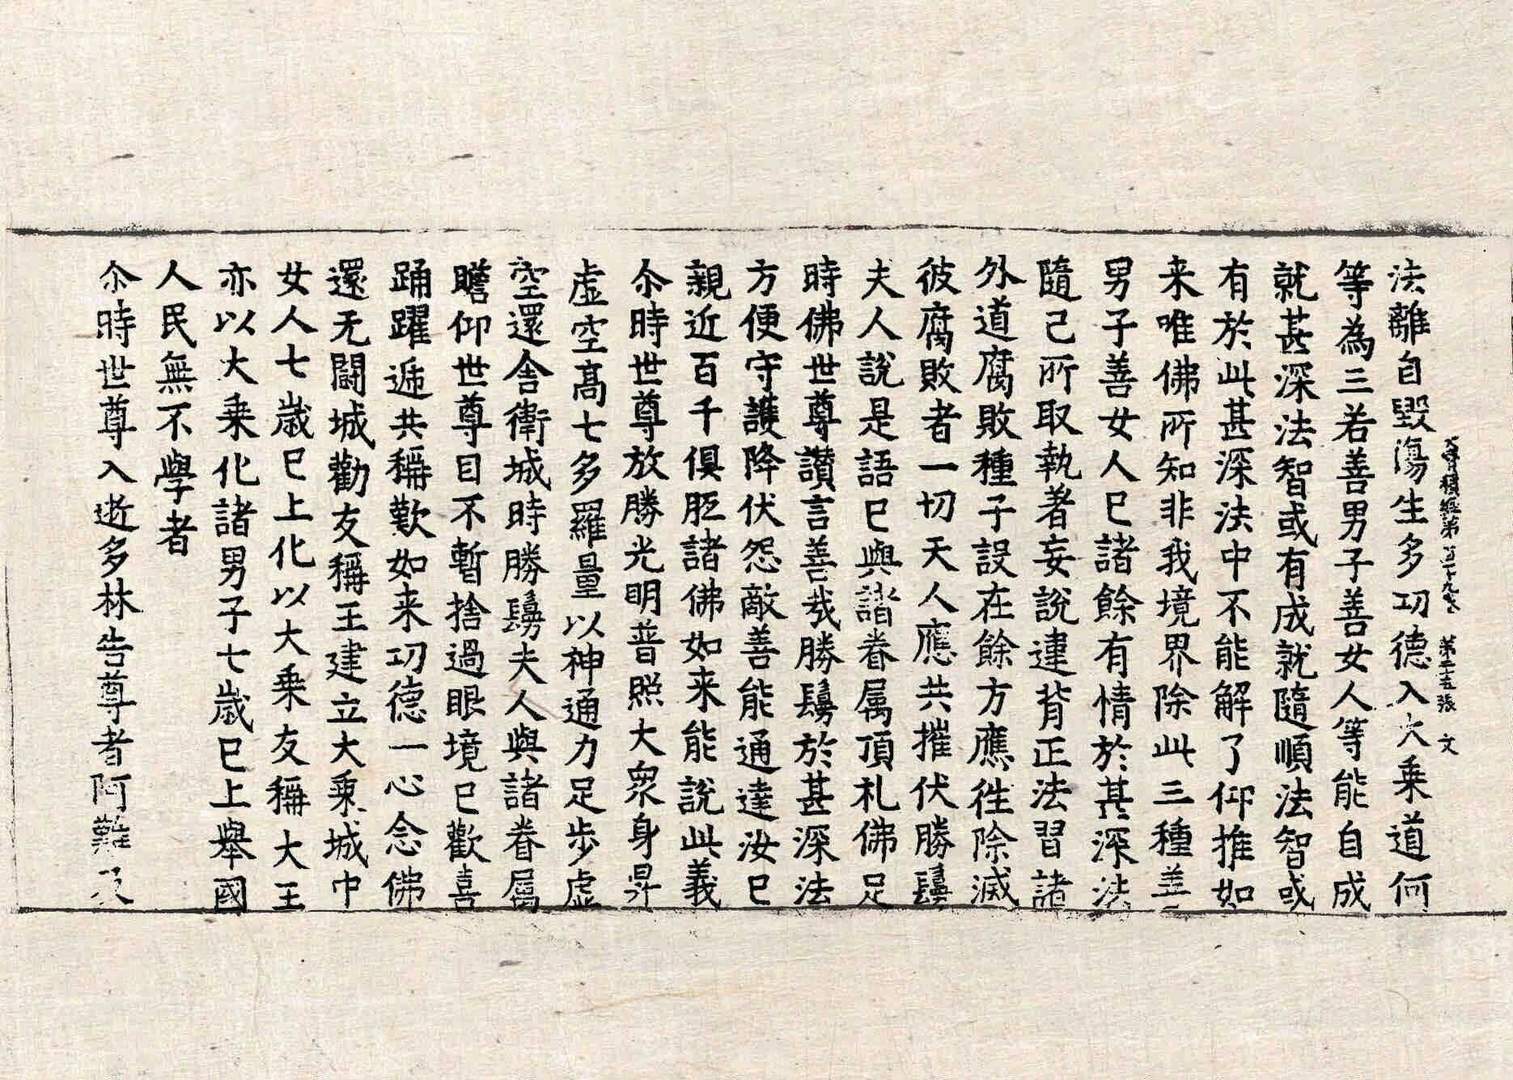 法離自毀傷生多功德入大乘道何
寶積經第百十九卷 第二十五張 文
等為三若善男子善女人等能自成
就甚深法智或有成就隨順法智或
有於此甚深法中不能解了仰推如
来唯佛所知非我境界除此三種善
男子善女人已諸餘有情於甚深法
隨己所取執著妄說違背正法習諸
外道腐敗種子設在餘方應往除滅
彼腐敗者一切天人應共摧伏勝鬘
夫人說是語已與諸眷属頂礼佛足
時佛世尊讃言善哉勝鬘於甚深法
方便守護降伏怨敵善能通達汝已
親近百千俱胝諸佛如来能說此義
尒時世尊放勝光明普照大衆身昇
虛空高七多羅量以神通力足步虛
空還舍衛城時勝鬘夫人與諸眷属
瞻仰世尊目不暫捨過眼境已歡喜
踊躍遞共稱歎如来功德一心念佛
還无鬪城勸友稱王建立大乘城中
女人七歲已上化以大乘友稱大王
亦以大乘化諸男子七歲已上舉國
人民無不學者
尒時世尊入逝多林告尊者阿難及